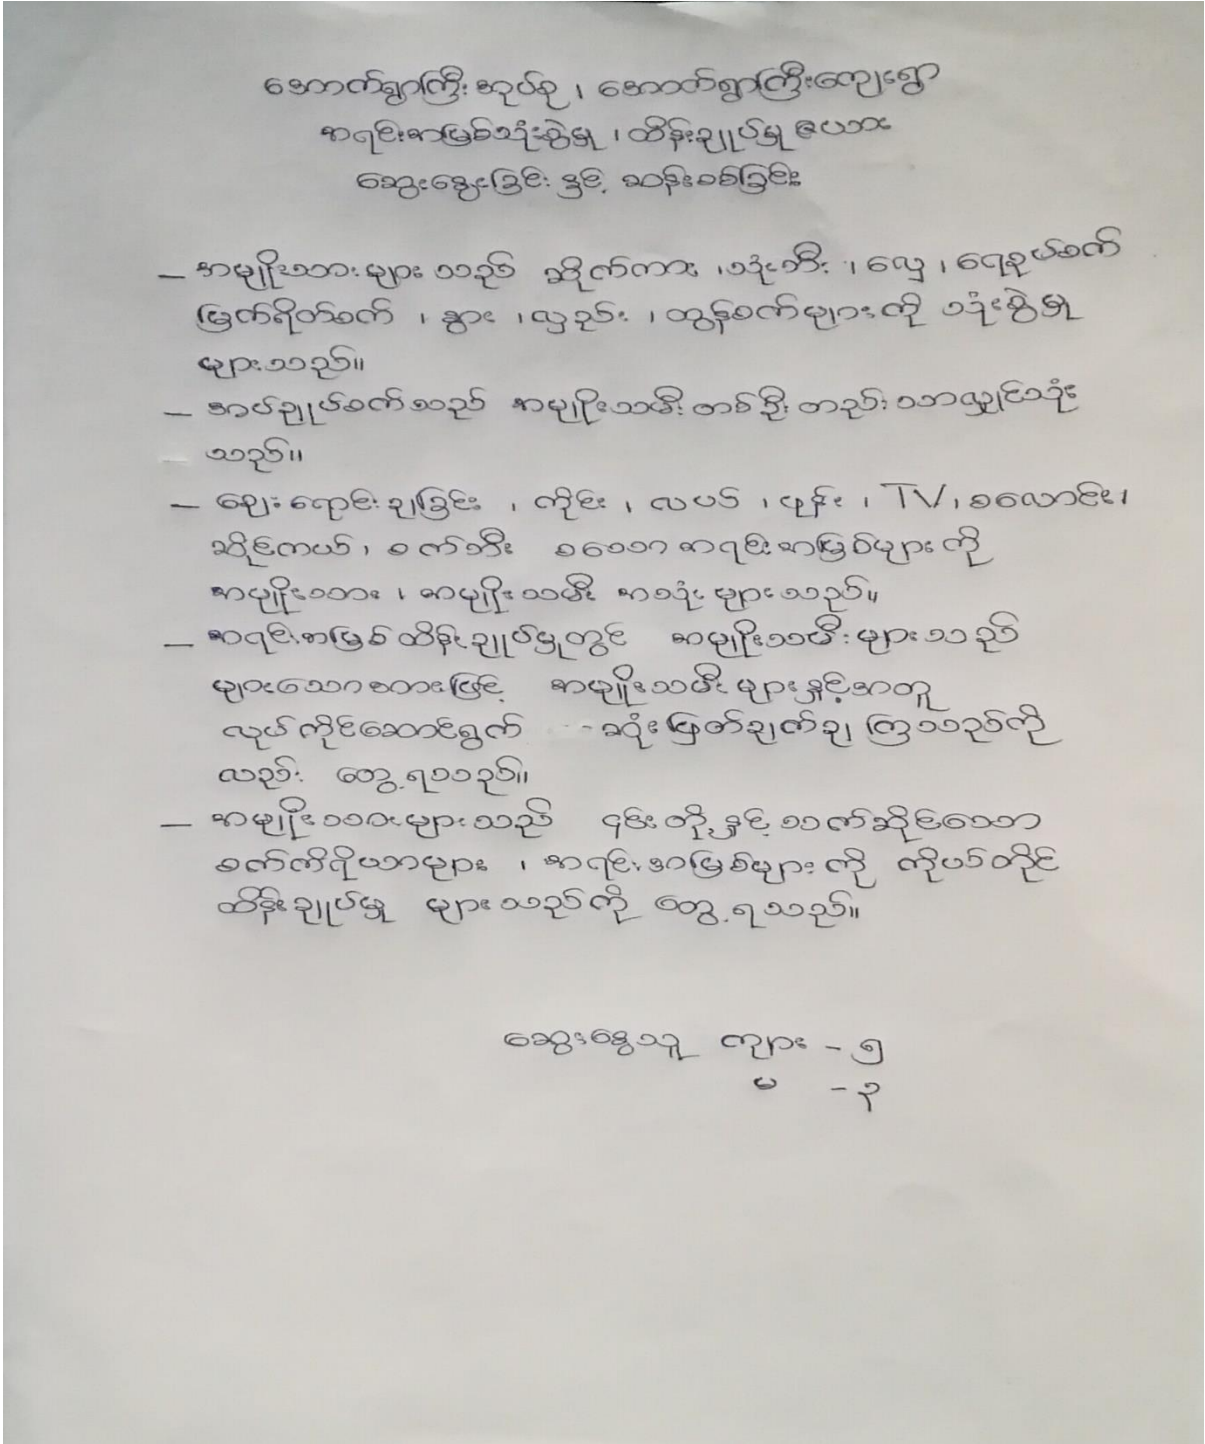 အောက်ရွာကြီးအုပ်စု ၊ အောက်ရွာကြီးကျေးရွာ
အရင်းအမြစ်သုံးစွဲမှု ၊ ထိန်းချုပ်မှု ဇယား
ဆွေးနွေးခြင်း နှင့် ဆန်းစစ်ခြင်း
– အမျိုးသားများ သည် ဆိုက်ကား ၊ သုံးဘီး ၊ လှေ ၊ ရေစုပ်စက်
မြက်ရိတ်စက် ၊ နွား ၊ လှည်း ၊ ထွန်စက်များကို သုံးစွဲမှု
များသည်။
– အပ်ချုပ်စက်သည် အမျိုးသမီး တစ်ဦး တည်း သာလျှင်သုံး
သည်။
– ဈေးရောင်းချခြင်း ၊ ကိုင်း ၊ လယ် ၊ ဖုန်း ၊ TV ၊ စလောင်း ၊
ဆိုင်ကယ် ၊ စက်ဘီး စသော အရင်းအမြစ်များကို
အမျိုးသား ၊ အမျိုးသမီး အသုံး များသည်။
– အရင်းအမြစ် ထိန်းချုပ်မှုတွင် အမျိုးသမီးများသည်
များသောအားဖြင့် အမျိုးသမီး များနှင့်အတူ
လုပ်ကိုင်ဆောင်ရွက် - ဆုံးဖြတ်ချက်ချ ကြသည်ကို
လည်း တွေ့ရသည်။
– အမျိုးသားများသည် ၎င်းတို့နှင့် သက်ဆိုင်သော
စက်ကိရိယာများ ၊ အရင်းအမြစ်များကို ကိုယ်တိုင်
ထိန်းချုပ်မှု များသည်ကို တွေ့ရသည်။
ဆွေးနွေးသူ ကျား - ၅
မ - ၃